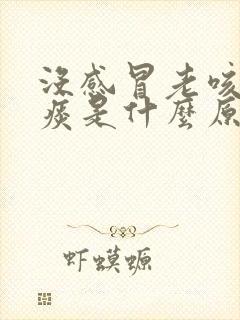 没感冒老咳
痰是什麼原
虾蟆螈